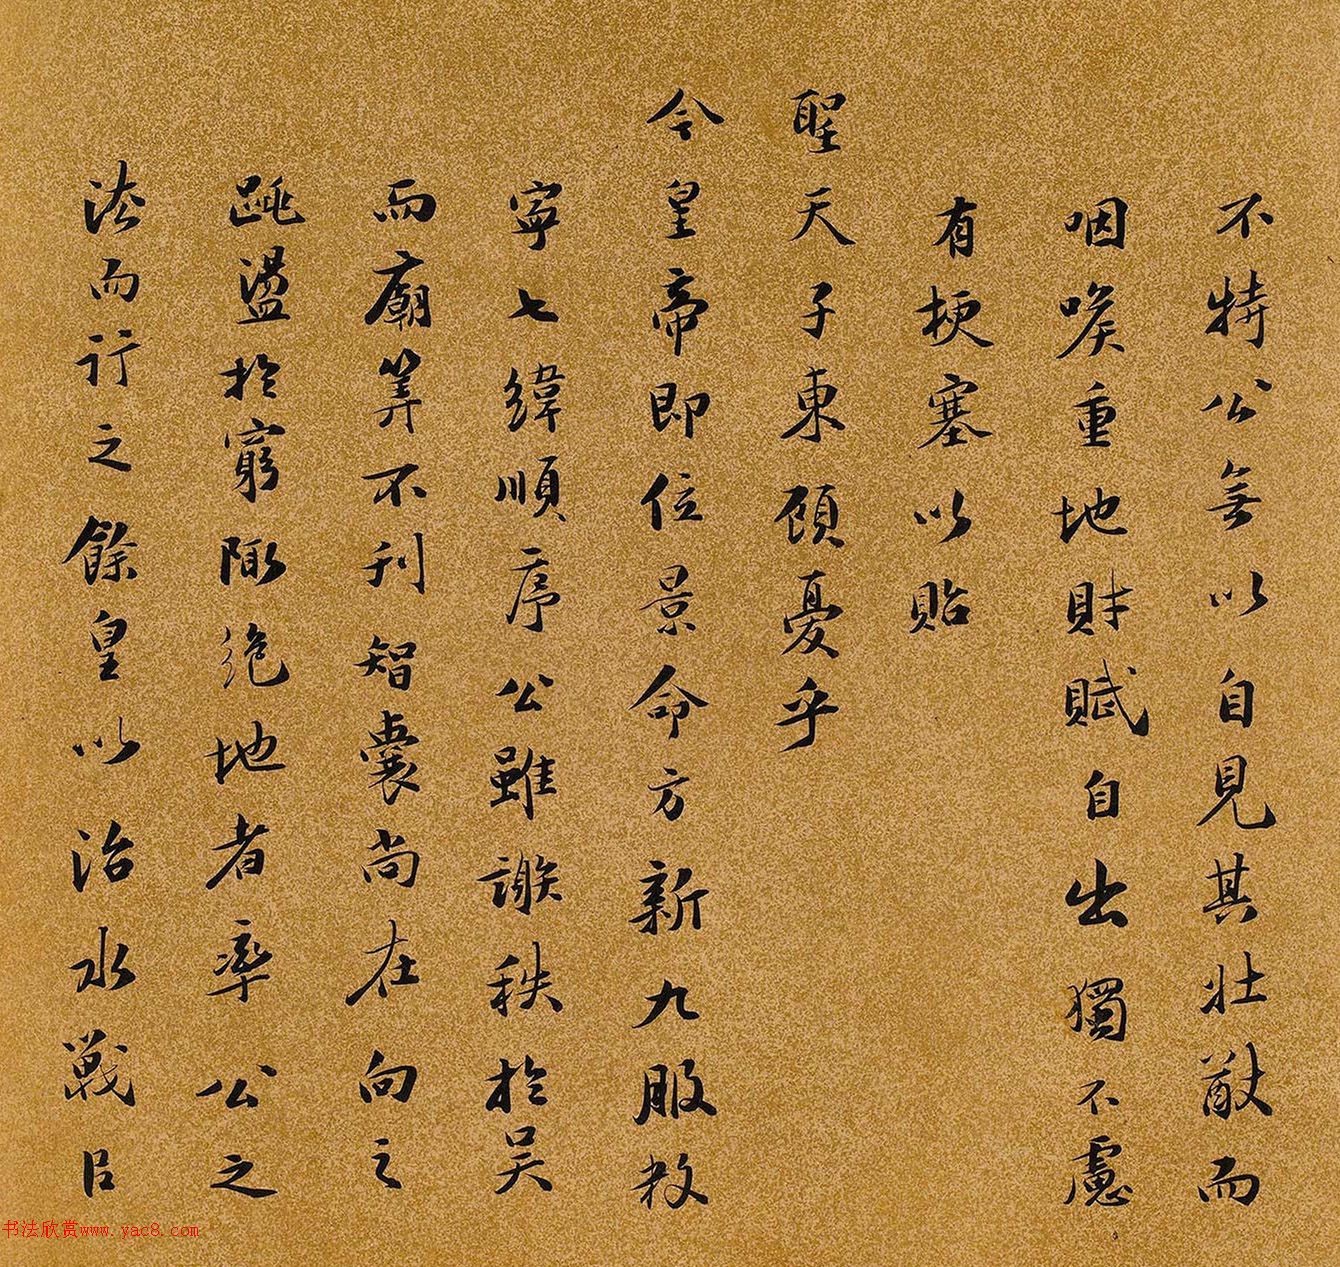 不特公無以自見其壯猷而
咽喉重地財賦自出獨不慮
有梗塞以貽
聖天子東顧憂乎
今皇帝即位景命方新九服救
寧七緯順序公雖謝秩於吳
而廟筭不刊智囊尚在向之
跳盪於窮陬絕地者率公之
法而行之餘皇以治水戰臣
书法欣赏www.yac8.com